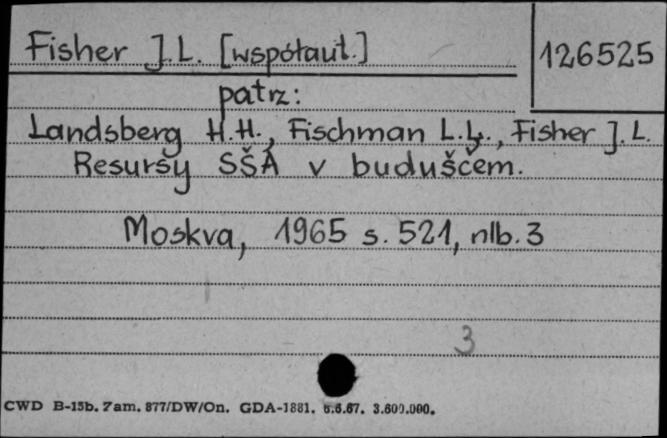 Fisher J.L. [współaut.]
126525
patrz:
Landsberg H.H., Fischman L.L., Fisher J.L.
Resursy SŠA v buduščem.
Moskva, 1965 s. 521, nlb. 3
3
CWD B-15b. Zam. 877/DW/On. GDA-1881. 6.6.67. 3.600.000.